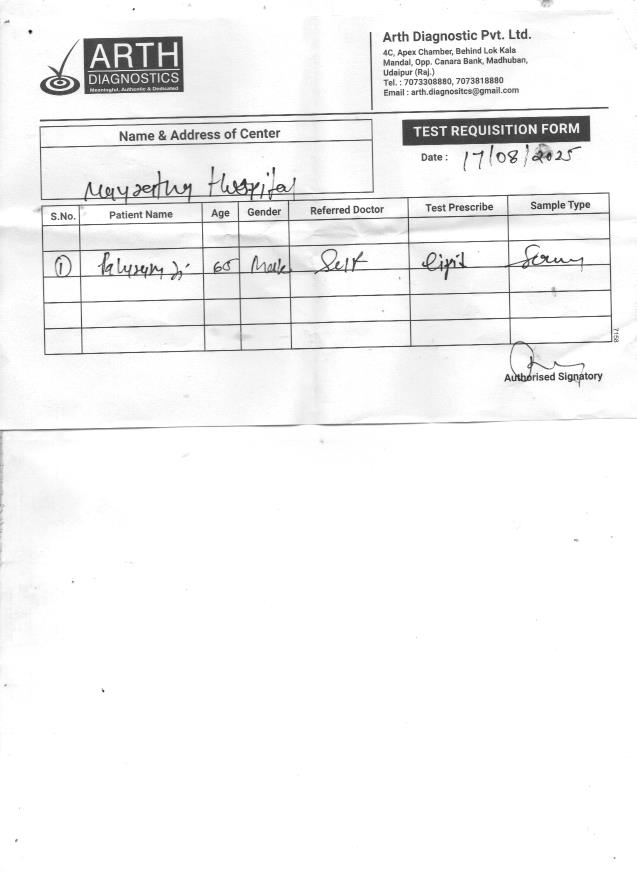 ARTH
DIAGNOSTICS
Meaningful, Authentic & Dedicated
Arth Diagnostic Pvt. Ltd.
4C, Apex Chamber, Behind Lok Kala
Mandal, Opp. Canara Bank, Madhuban,
Udaipur (Raj.)
Tel. : 7073308880, 7073818880
Email : arth.diagnositcs@gmail.com
Name & Address of Center
TEST REQUISITION FORM
Date : 17/08/2025
Hospital
S.No. Patient Name Age Gender Referred Doctor Test Prescribe Sample Type
1 65 Male Self lipid Serum
7158
Authorised Signatory